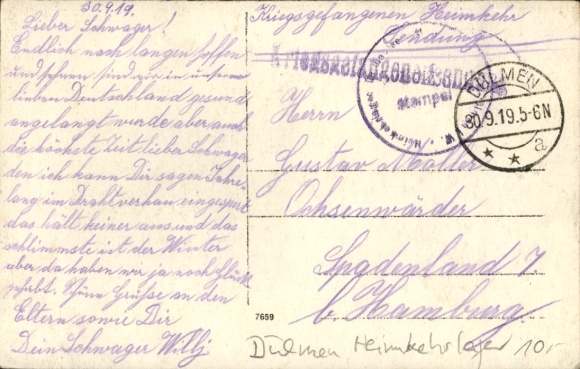 30.9.19.
Lieber Schwager!
Endlich nach langen hoffen
und sehnen sind wir in unserm
lieben Deutschland gesund
angelangt wurde aber auch
die höchste Zeit lieber Schwager
den ich kann Dir sagen Jahre-
lang im Drahtverhau eingesperrt
das hält keiner aus und das
schlimmste ist der Winter
aber da haben wir ja noch Glück
gehabt. Schöne Grüße an den
Eltern sowie Dir
Dein Schwager Willj
Kriegsgefangenen Heimkehr
Sendung
Kriegsgefangenensendung
Stempel
DÜLMEN
30.9.19.5-6N
* * a
Herrn
Gustav Möller
Ochsenwärder
Spadenland 7.
b. Hamburg.
7659
Dülmen Heimkehrlager 10,-